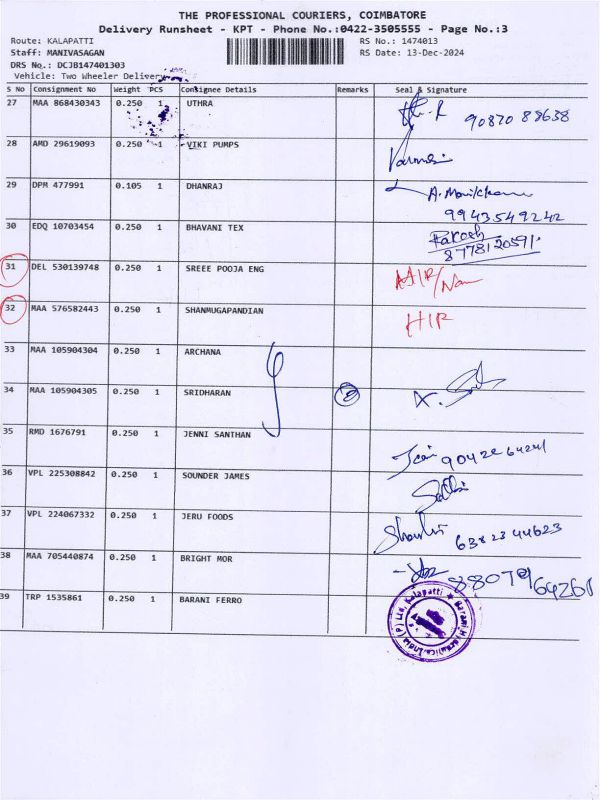 THE PROFESSIONAL COURIERS, COIMBATORE
Delivery Runsheet - KPT - Phone No.:0422-3505555 - Page No.:3
Route: KALAPATTI RS No.: 1474013
Staff: MANIVASAGAN RS Date: 13-Dec-2024
DRS No.: DCJB147401303
Vehicle: Two Wheeler Delivery
S No Consignment No Weight PCS Consignee Details Remarks Seal & Signature
27 MAA 868430343 0.250 1 UTHRA 90870 88638
28 AMD 29619093 0.250 1 VIKI PUMPS
29 DPM 477991 0.105 1 DHANRAJ A. Manikkam
9943549242
30 EDQ 10703454 0.250 1 BHAVANI TEX Rakesh
8778120591
31 DEL 530139748 0.250 1 SREEE POOJA ENG
32 MAA 576582443 0.250 1 SHANMUGAPANDIAN HIR
33 MAA 105904304 0.250 1 ARCHANA
34 MAA 105904305 0.250 1 SRIDHARAN
35 RMD 1676791 0.250 1 JENNI SANTHAN Jeni 9042264241
36 VPL 225308842 0.250 1 SOUNDER JAMES
37 VPL 224067332 0.250 1 JERU FOODS 6382344623
38 MAA 705440874 0.250 1 BRIGHT MOR
39 TRP 1535861 0.250 1 BARANI FERRO